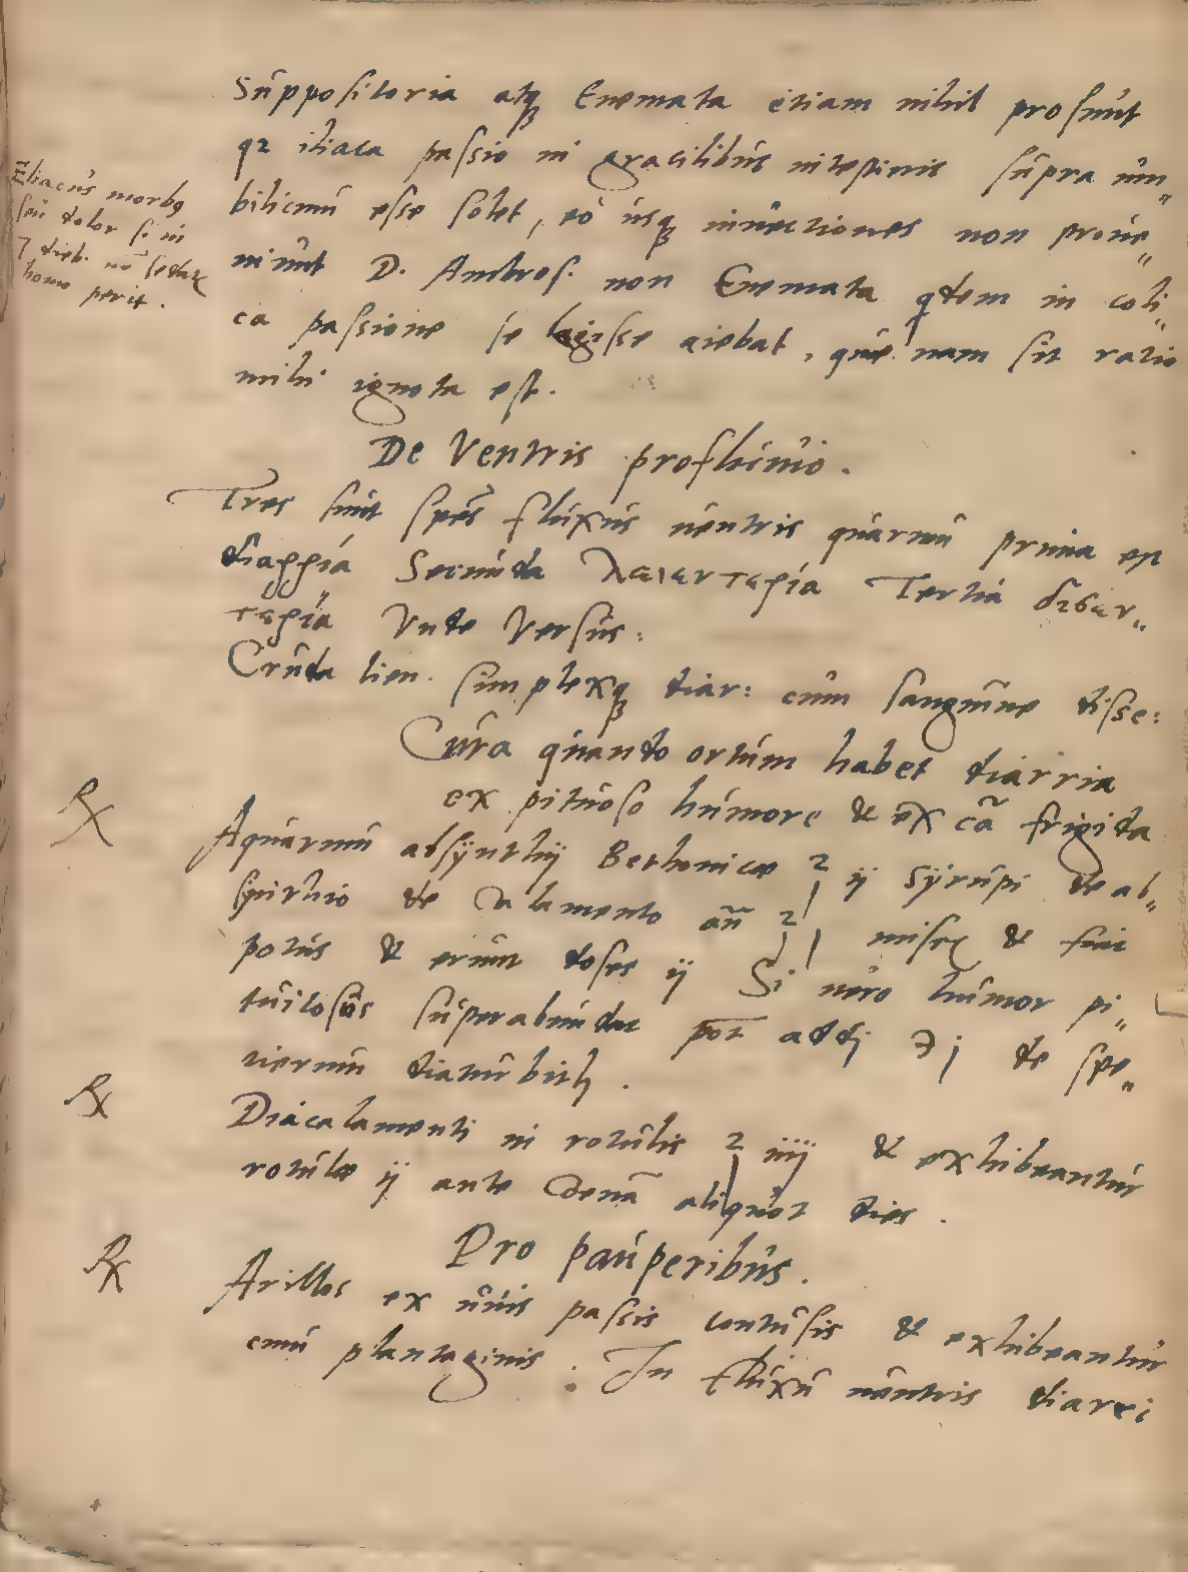 Suppositoria atqꝫ Enemata etiam nihil prosunt
qꝛ iliaca passio in gracilibus intestinis supra um„
bilicum esse solet, eo usqꝫ iniectiones non proue„
niunt D. Ambros. non Enemata qͥdem in coli„
ca passione se legisse aiebat, quenam sit ratio
mihi ignota est.
Eliacus morbꝰ
seu dolor si in
7 dieb. nō sedat᷑
homo perit.
De Ventris profluuio.
Tres sunt spēs fluxus uentris quarum prima est
διαρρία Secunda λειεντερία Tertia δισεν„
τερία Vnde Versus:
Cruda lien. simplexqꝫ diar: cum sanguine disse:
Cura quando ortum habet diarria
ex pituoso humore & ex cā frigida
℞ Aquarum absÿnthÿ Bethonicæ ℥ ij Sÿrupi de ab„
sinthio de Calamento añ ℥ j misc᷑ & fiat
potus & erunt doses ij Si uero humor pi„
tuitosus superabundat pōt addj ℈ j de spe„
cierum diaturbith.
℞ Diacalamenti in rotulis ℥ iiij & exhibeantur
rotulæ ij ante Coenā aliquot dies.
Pro pauperibus.
℞ Arillos ex uuis passis contusis & exhibeantur
cum plantaginis. In fluxu uentris diarri